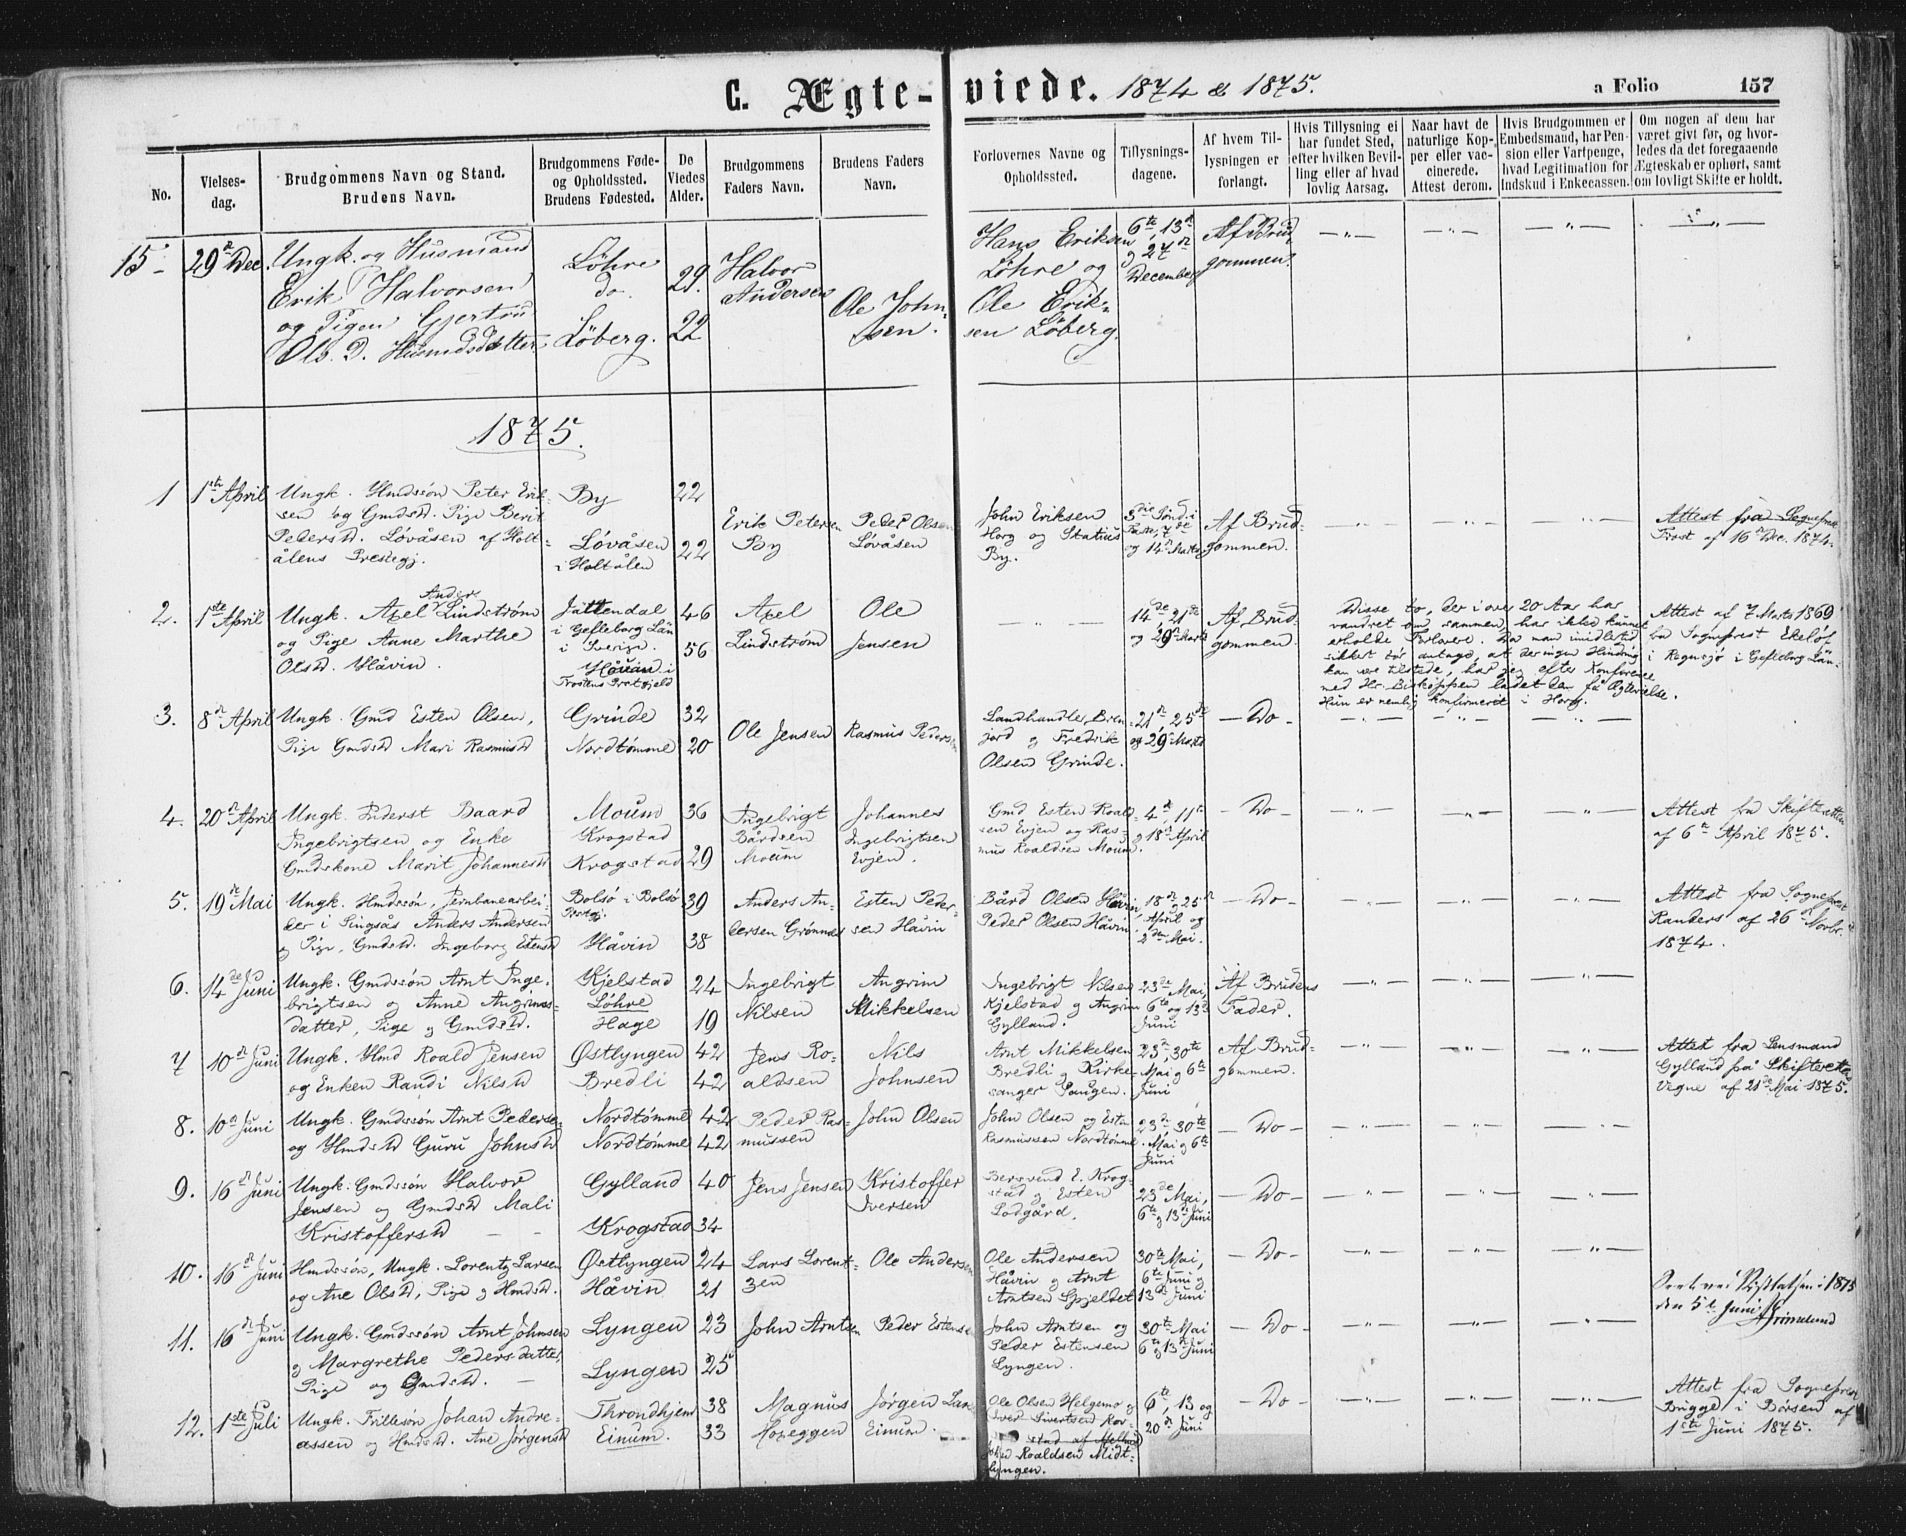 C. Ægte-viede. 1874 & 1875. a Folio 157
No.
Vielses-
dag.
Brudgommens Navn og Stand.
Brudens Navn.
Brudgommens Føde-
og Opholdssted.
Brudens Fødested.
De
Viedes
Alder.
Brudgommens
Faders Navn.
Brudens Faders
Navn.
Forlovernes Navne og
Opholdssted.
Tillysnings-
dagene.
Af hvem Til-
lysningen er
forlangt.
Hvis Tillysning ei
har fundet Sted,
efter hvilken Bevil-
ling eller af hvad
lovlig Aarsag.
Naar havt de
naturlige Kop-
per eller vac-
cinerede.
Attest derom.
Hvis Brudgommen er
Embedsmand, har Pen-
sion eller Vartpenge,
hvad Legitimation for
Indskud i Enkecassen.
Om nogen af dem har
været givt før, og hvor-
ledes da det foregaaende
Ægteskab er ophørt, samt
om lovligt Skifte er holdt.
15- 29de Dec.
Ungk. og Husmand
Erik Halvorsen
og Pigen Gjertru
Ols. D. Husmdsdatter
Löhre
do.
Löberg.
29.
22
Halvor
Andersen
Ole John-
sen.
Hans Eriksen
Löhre og
Ole Erik-
sen Löberg.
6te, 13de
og 27de
December
Af Brud-
gommen.
1875.
1 1ste April
Ungk. Hmdssön Peter Erik-
sen og Gmdsd. Pige Berit
Pedersd. Lövåsen af Holt-
ålens Prestegj.
By
Lövåsen
i Holtålen
22
22
Erik Petersen
By
Peder Olsen
Lövåsen
John Eriksen
Horg og Statius
By.
3die Sönd. i
Faste, 7de
og 14de Marts
Af Brud-
gommen.
Attest fra Sognefrest
Frost af 16de Dec. 1874.
2. 1ste April
Ungk. Axel Anders Lindström
og Pige Anne Marthe
Olsd. Håvin.
Jattendal
i Gefleborg Län
i Sverige.
Hövin i
Frostens Prestgjeld
46
56
Axel
Lindström
Ole
Jensen
14de, 21de
og 29de Marts
Af Brud-
gommen.
Disse to, der i over 20 Aar har
vandret om sammen, har ikke kunnet
erholde Forlovere. Da man imidlertid
sikkert tør antage, at der ingen Hindring
kan være tilstede, har jeg efter Konference
med Hr. Biskoppen ladet dem få Ægtevielse.
Hun er nemlig konfirmeret i Horg.
Attest af 7 Marts 1869
fra Sogneprest Ekelöf
i Regnsjö i Gefleborg Län.
3. 8de April
Ungk. Gmd Esten Olsen,
Pige Gmdsd Mari Rasmusd
Grinde
Nordtömme
32
20
Ole Jensen
Rasmus Pedersen
Landhandler Bren-
jord og Fredrik
Olsen Grinde.
21de, 25de
og 29de Marts
- Do -
4. 20de April
Ungk. Inderst Baard
Ingebrigtsen og Enke
Gmdskone Marit Johannesd
Moum
Krogstad
Krogstad
36
29
Ingebrigt
Bårdsen
Moum
Johannes
Ingebrigtsen
Evjen.
Gmd Esten Roald-
sen Evjen og Ras-
mus Roaldsen Moum.
4de, 11te
og 18de April
- Do -
Attest fra Skifteretten
af 6te April 1875.
5. 19de Mai
Ungk. Hmdssön, Jernbanearbei-
der i Singsås Anders Andersen
og Pige, Gmdsd. Ingeborg Estensd
Bolsö i Bolsö
Prstgj.
Håvin
39
38
Anders An-
dersen Grönnes
Esten Peder-
sen Håvin
Bård Olsen Håvin,
Peder Olsen Håvin
18de, 25de
April og
2den Mai.
- Do -
Attest fra Sogneprest
Randers af 26de Novbr.
1874.
6. 14de Juni
Ungk. Gmdssön Arnt Inge-
brigtsen og Anne Angrims-
datter, Pige og Gmdsd.
Kjelstad
Löhre
Hage
24
19
Ingebrigt
Nilsen
Angrim
Mikkelsen
Ingebrigt Nilsen
Kjelstad og Angrim
Gylland.
23de Mai,
6te og 13de
Juni
Af Brudens
Fader.
7 10de Juni
Ungk. Hmd Roald Jensen
og Enken Randi Nilsd
Østlyngen
Bredli
42
42
Jens Ro-
aldsen
Nils
Johnsen
Arnt Mikkelsen
Bredli og Kirke-
sanger Saugen.
23de, 30te
Mai og 6te
Juni
Af Brud-
gommen.
Attest fra Lensmand
Gylland på Skifterettens
Vegne af 21de Mai 1875.
8. 10de Juni
Ungk. Gmdssön Arnt Pedersen
og Hmdsd Guru Johnsd
Nordtömme
Nordtömme
42
42
Peder Ras-
mussen
John Olsen
John Olsen og Esten
Rasmussen Nordtömme.
23de, 30te
Mai og 6te
Juni
- Do -
9. 16de Juni
Ungk. Gmdssön Halvor
Jensen og Gmdsd Mali
Kristoffersd
Gylland
Krogstad
40
34
Jens Jensen
Kristoffer
Iversen
Bersvend E. Krog-
stad og Esten
Lodgård.
23de Mai,
6te og 13de Juni
- Do -
10. 16de Juni
Hmdssön, Ungk. Lorentz Larsen
og Ane Olsd, Pige og Hmdsd.
Østlyngen
Håvin
24
21
Lars Lorent-
zen
Ole Andersen
Ole Andersen
Håvin og Arnt
Arntsen Spjeldet
30te Mai,
6te Juni og
13de Juni
- Do -
Seet ved Visitatsen i 1875
den 5te Juni Grimelund
11. 16de Juni
Ungk. Gmdssön Arnt Johnsen
og Margrethe Pedersdatter,
Pige og Gmdsd.
Lyngen
Lyngen
23
25
John Arntsen
Peder Estensen
John Arntsen og
Peder Estensen
Lyngen.
30te Mai
6te og 13de Juni
- Do -
12. 1ste Juli
Ungk. Frillesön Johan Andre-
assen og Hmdsd. Ane Jörgensd
Throndhjem
Einum.
38
33
Magnus
Hoseggen
Jörgen Lar-
Einum.
Ole Olsen Helgemo og
Iver Sivertsen Kor-
stad af Melhus
John Roaldsen Midt-
lyngen.
6te, 13 og
20de Juni
- Do -
Attest fra Sogneprest
Brigge i Börsen af
1ste Juni 1875.